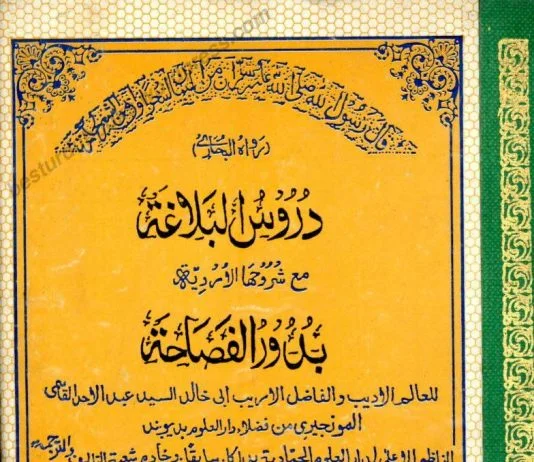 قال رسول الله صلى الله عليه وسلم إن من البيان لسحرا وإن من الشعر
(رواه البخاري)
دُرُوسُ البَلاغَة
مع شروحها الأردية
بدور الفصاحة
للعالم الاديب والفاضل الاريب ابي خالد السيد عبد الاحد القاسمي
المونجيري من فضلاء دار العلوم بديوبند